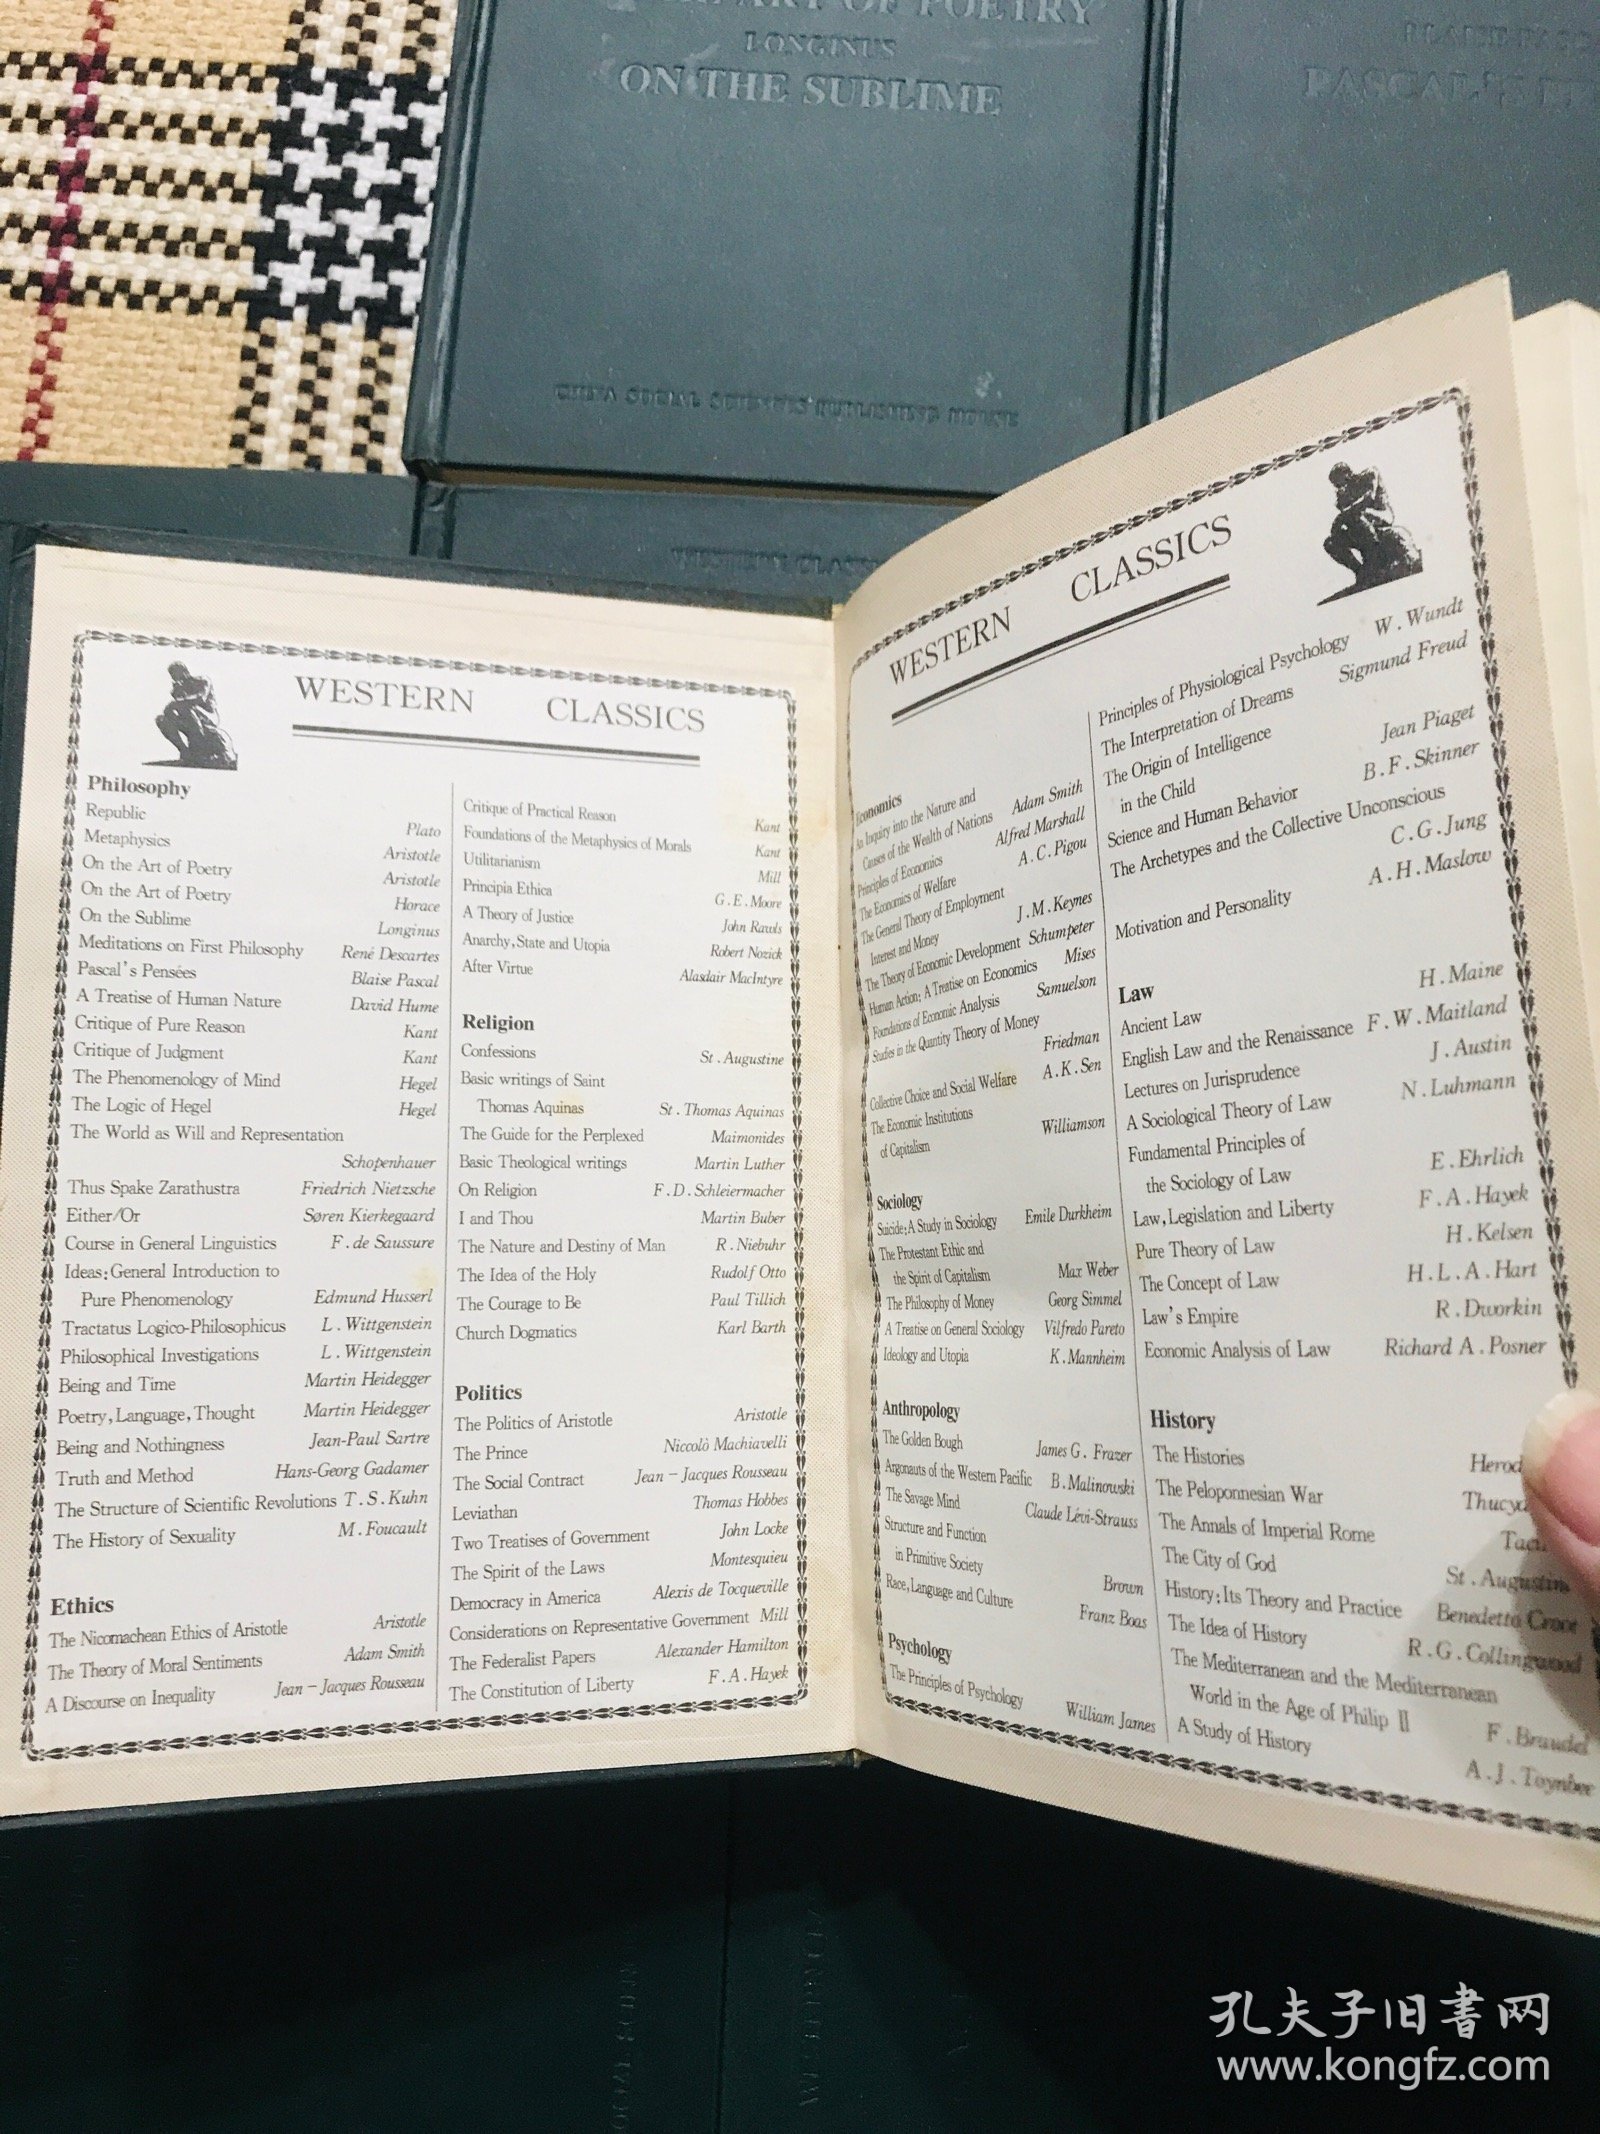 ART OF POETRY
LONGINUS
ON THE SUBLIME
CHINA SOCIAL SCIENCES PUBLISHING HOUSE
PASCAL'S
WESTERN CLASSICS
Philosophy
Republic Plato
Metaphysics Aristotle
On the Art of Poetry Aristotle
On the Art of Poetry Horace
On the Sublime Longinus
Meditations on First Philosophy René Descartes
Pascal's Pensées Blaise Pascal
A Treatise of Human Nature David Hume
Critique of Pure Reason Kant
Critique of Judgment Kant
The Phenomenology of Mind Hegel
The Logic of Hegel Hegel
The World as Will and Representation
Schopenhauer
Thus Spake Zarathustra Friedrich Nietzsche
Either/Or Søren Kierkegaard
Course in General Linguistics F.de Saussure
Ideas:General Introduction to
Pure Phenomenology Edmund Husserl
Tractatus Logico-Philosophicus L.Wittgenstein
Philosophical Investigations L.Wittgenstein
Being and Time Martin Heidegger
Poetry,Language,Thought Martin Heidegger
Being and Nothingness Jean-Paul Sartre
Truth and Method Hans-Georg Gadamer
The Structure of Scientific Revolutions T.S.Kuhn
The History of Sexuality M.Foucault
Ethics
The Nicomachean Ethics of Aristotle Aristotle
The Theory of Moral Sentiments Adam Smith
A Discourse on Inequality Jean-Jacques Rousseau
Critique of Practical Reason Kant
Foundations of the Metaphysics of Morals Kant
Utilitarianism Mill
Principia Ethica G.E.Moore
A Theory of Justice John Rawls
Anarchy,State and Utopia Robert Nozick
After Virtue Alasdair MacIntyre
Religion
Confessions St.Augustine
Basic writings of Saint
Thomas Aquinas St.Thomas Aquinas
The Guide for the Perplexed Maimonides
Basic Theological writings Martin Luther
On Religion F.D.Schleiermacher
I and Thou Martin Buber
The Nature and Destiny of Man R.Niebuhr
The Idea of the Holy Rudolf Otto
The Courage to Be Paul Tillich
Church Dogmatics Karl Barth
Politics
The Politics of Aristotle Aristotle
The Prince Niccolò Machiavelli
The Social Contract Jean-Jacques Rousseau
Leviathan Thomas Hobbes
Two Treatises of Government John Locke
The Spirit of the Laws Montesquieu
Democracy in America Alexis de Tocqueville
Considerations on Representative Government Mill
The Federalist Papers Alexander Hamilton
The Constitution of Liberty F.A.Hayek
WESTERN CLASSICS
Economics
An Inquiry into the Nature and
Causes of the Wealth of Nations Adam Smith
Principles of Economics Alfred Marshall
The Economics of Welfare A.C.Pigou
The General Theory of Employment
Interest and Money J.M.Keynes
The Theory of Economic Development Schumpeter
Human Action:A Treatise on Economics Mises
Foundations of Economic Analysis Samuelson
Studies in the Quantity Theory of Money
Friedman
Collective Choice and Social Welfare A.K.Sen
The Economic Institutions
of Capitalism Williamson
Sociology
Suicide:A Study in Sociology Emile Durkheim
The Protestant Ethic and
the Spirit of Capitalism Max Weber
The Philosophy of Money Georg Simmel
A Treatise on General Sociology Vilfredo Pareto
Ideology and Utopia K.Mannheim
Anthropology
The Golden Bough James G. Frazer
Argonauts of the Western Pacific B.Malinowski
The Savage Mind Claude Lévi-Strauss
Structure and Function
in Primitive Society Brown
Race,Language and Culture Franz Boas
Psychology
The Principles of Psychology William James
Principles of Physiological Psychology W.Wundt
The Interpretation of Dreams Sigmund Freud
The Origin of Intelligence
in the Child Jean Piaget
Science and Human Behavior B.F.Skinner
The Archetypes and the Collective Unconscious
C.G.Jung
Motivation and Personality A.H.Maslow
Law
Ancient Law H.Maine
English Law and the Renaissance F.W.Maitland
Lectures on Jurisprudence J.Austin
A Sociological Theory of Law N.Luhmann
Fundamental Principles of
the Sociology of Law E.Ehrlich
Law,Legislation and Liberty F.A.Hayek
Pure Theory of Law H.Kelsen
The Concept of Law H.L.A.Hart
Law's Empire R.Dworkin
Economic Analysis of Law Richard A.Posner
History
The Histories Herod
The Peloponnesian War Thucyd
The Annals of Imperial Rome Taci
The City of God St.Augustine
History:Its Theory and Practice Benedetto Croce
The Idea of History R.G.Collingwood
The Mediterranean and the Mediterranean
World in the Age of Philip II F.Braudel
A Study of History A.J.Toynbee
孔夫子旧书网
www.kongfz.com